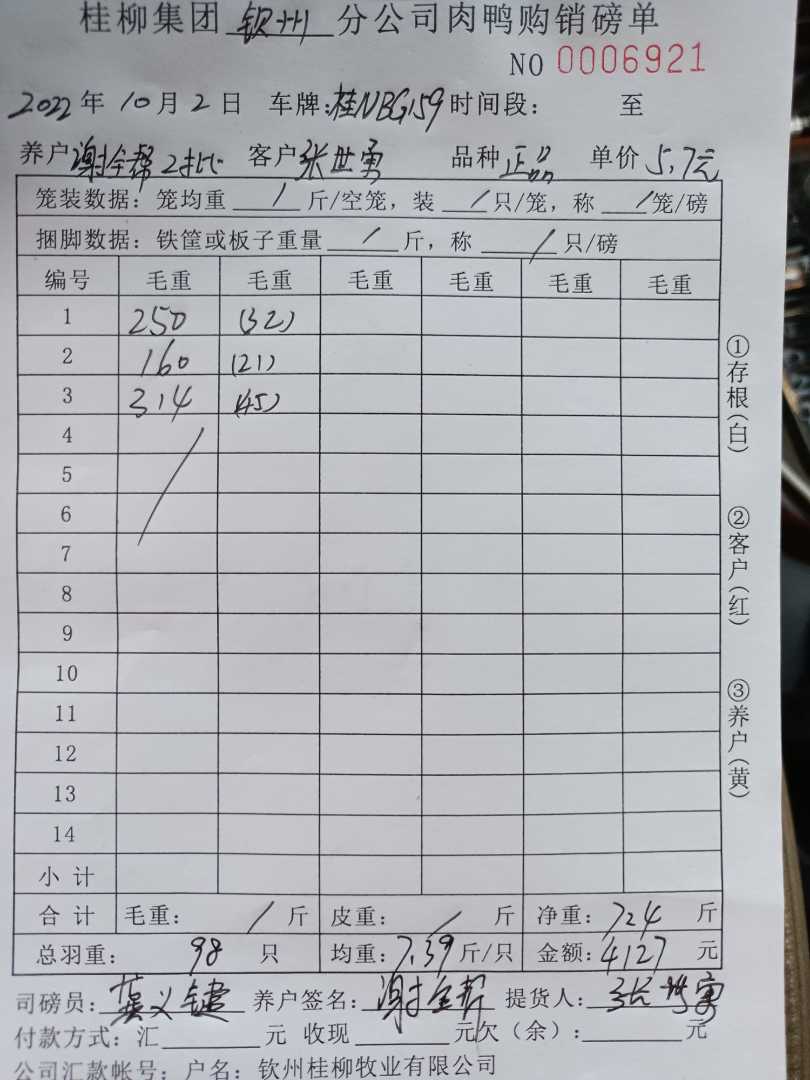 桂柳集团 钦州 分公司肉鸭购销磅单
NO 0006921
2022年 10月 2日 车牌:桂NBG159 时间段: 至
养户 谢全帮 2对比 客户 张世勇 品种 正品 单价 5.7元
笼装数据: 笼均重 / 斤/空笼, 装 / 只/笼, 称 / 笼/磅
捆脚数据: 铁筐或板子重量 / 斤, 称 / 只/磅
编号 毛重 毛重 毛重 毛重 毛重 毛重
1 250 (32)
2 160 (21)
3 314 (45)
4
5
6
7
8
9
10
11
12
13
14
小 计
合 计 毛重: / 斤 皮重: / 斤 净重: 724 斤
总羽重: 98 只 均重: 7.39 斤/只 金额: 4127 元
司磅员: 义键 养户签名: 谢全帮 提货人: 张世勇
付款方式: 汇 元 收现 元欠(余): 元
公司汇款帐号: 户名: 钦州桂柳牧业有限公司
①存根(白)
②客户(红)
③养户(黄)